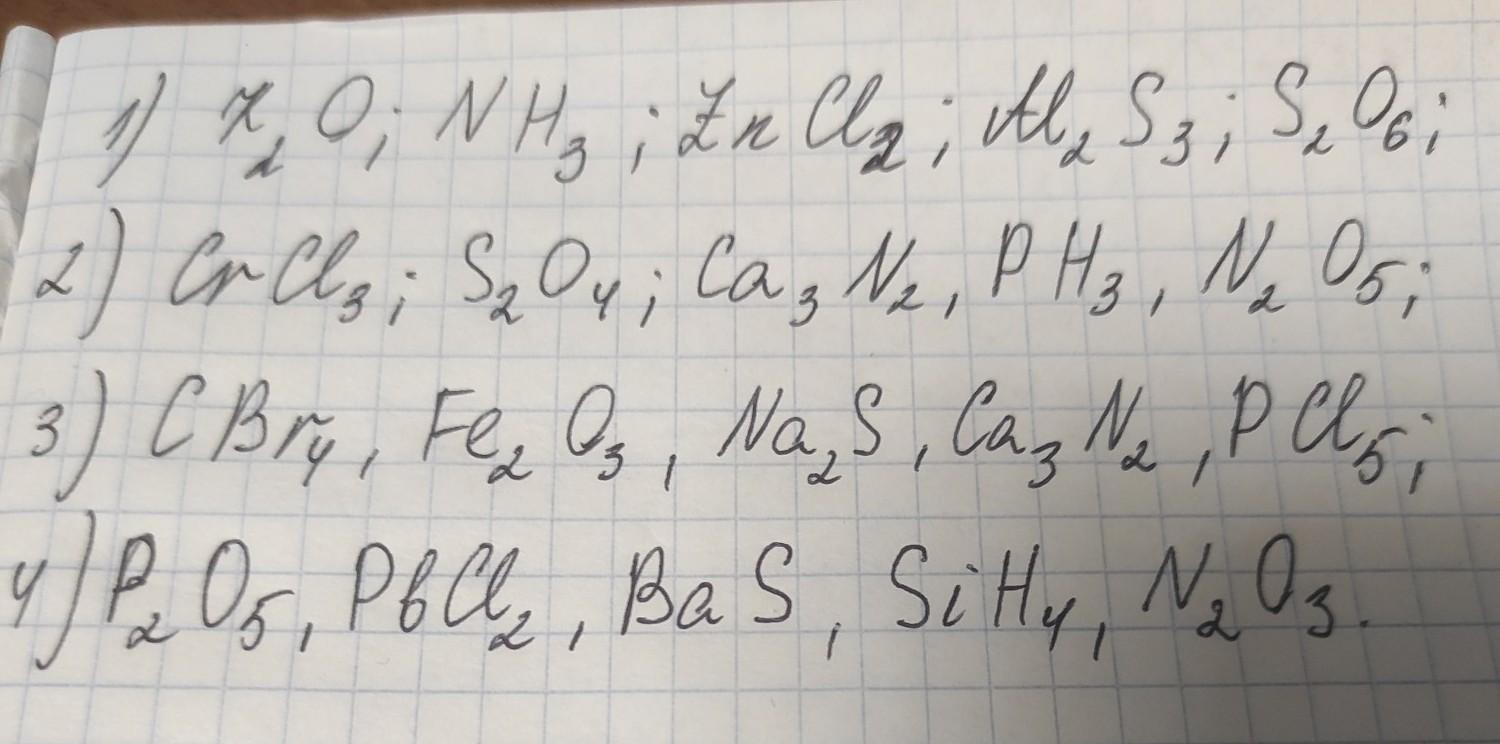 1) K₂O; NH₃; ZnCl₂; Al₂S₃; S₂O₆;
2) CrCl₃; S₂O₄; Ca₃N₂, PH₃, N₂O₅;
3) CBr₄, Fe₂O₃, Na₂S, Ca₃N₂, PCl₅;
4) P₂O₅, PbCl₂, BaS, SiH₄, N₂O₃.